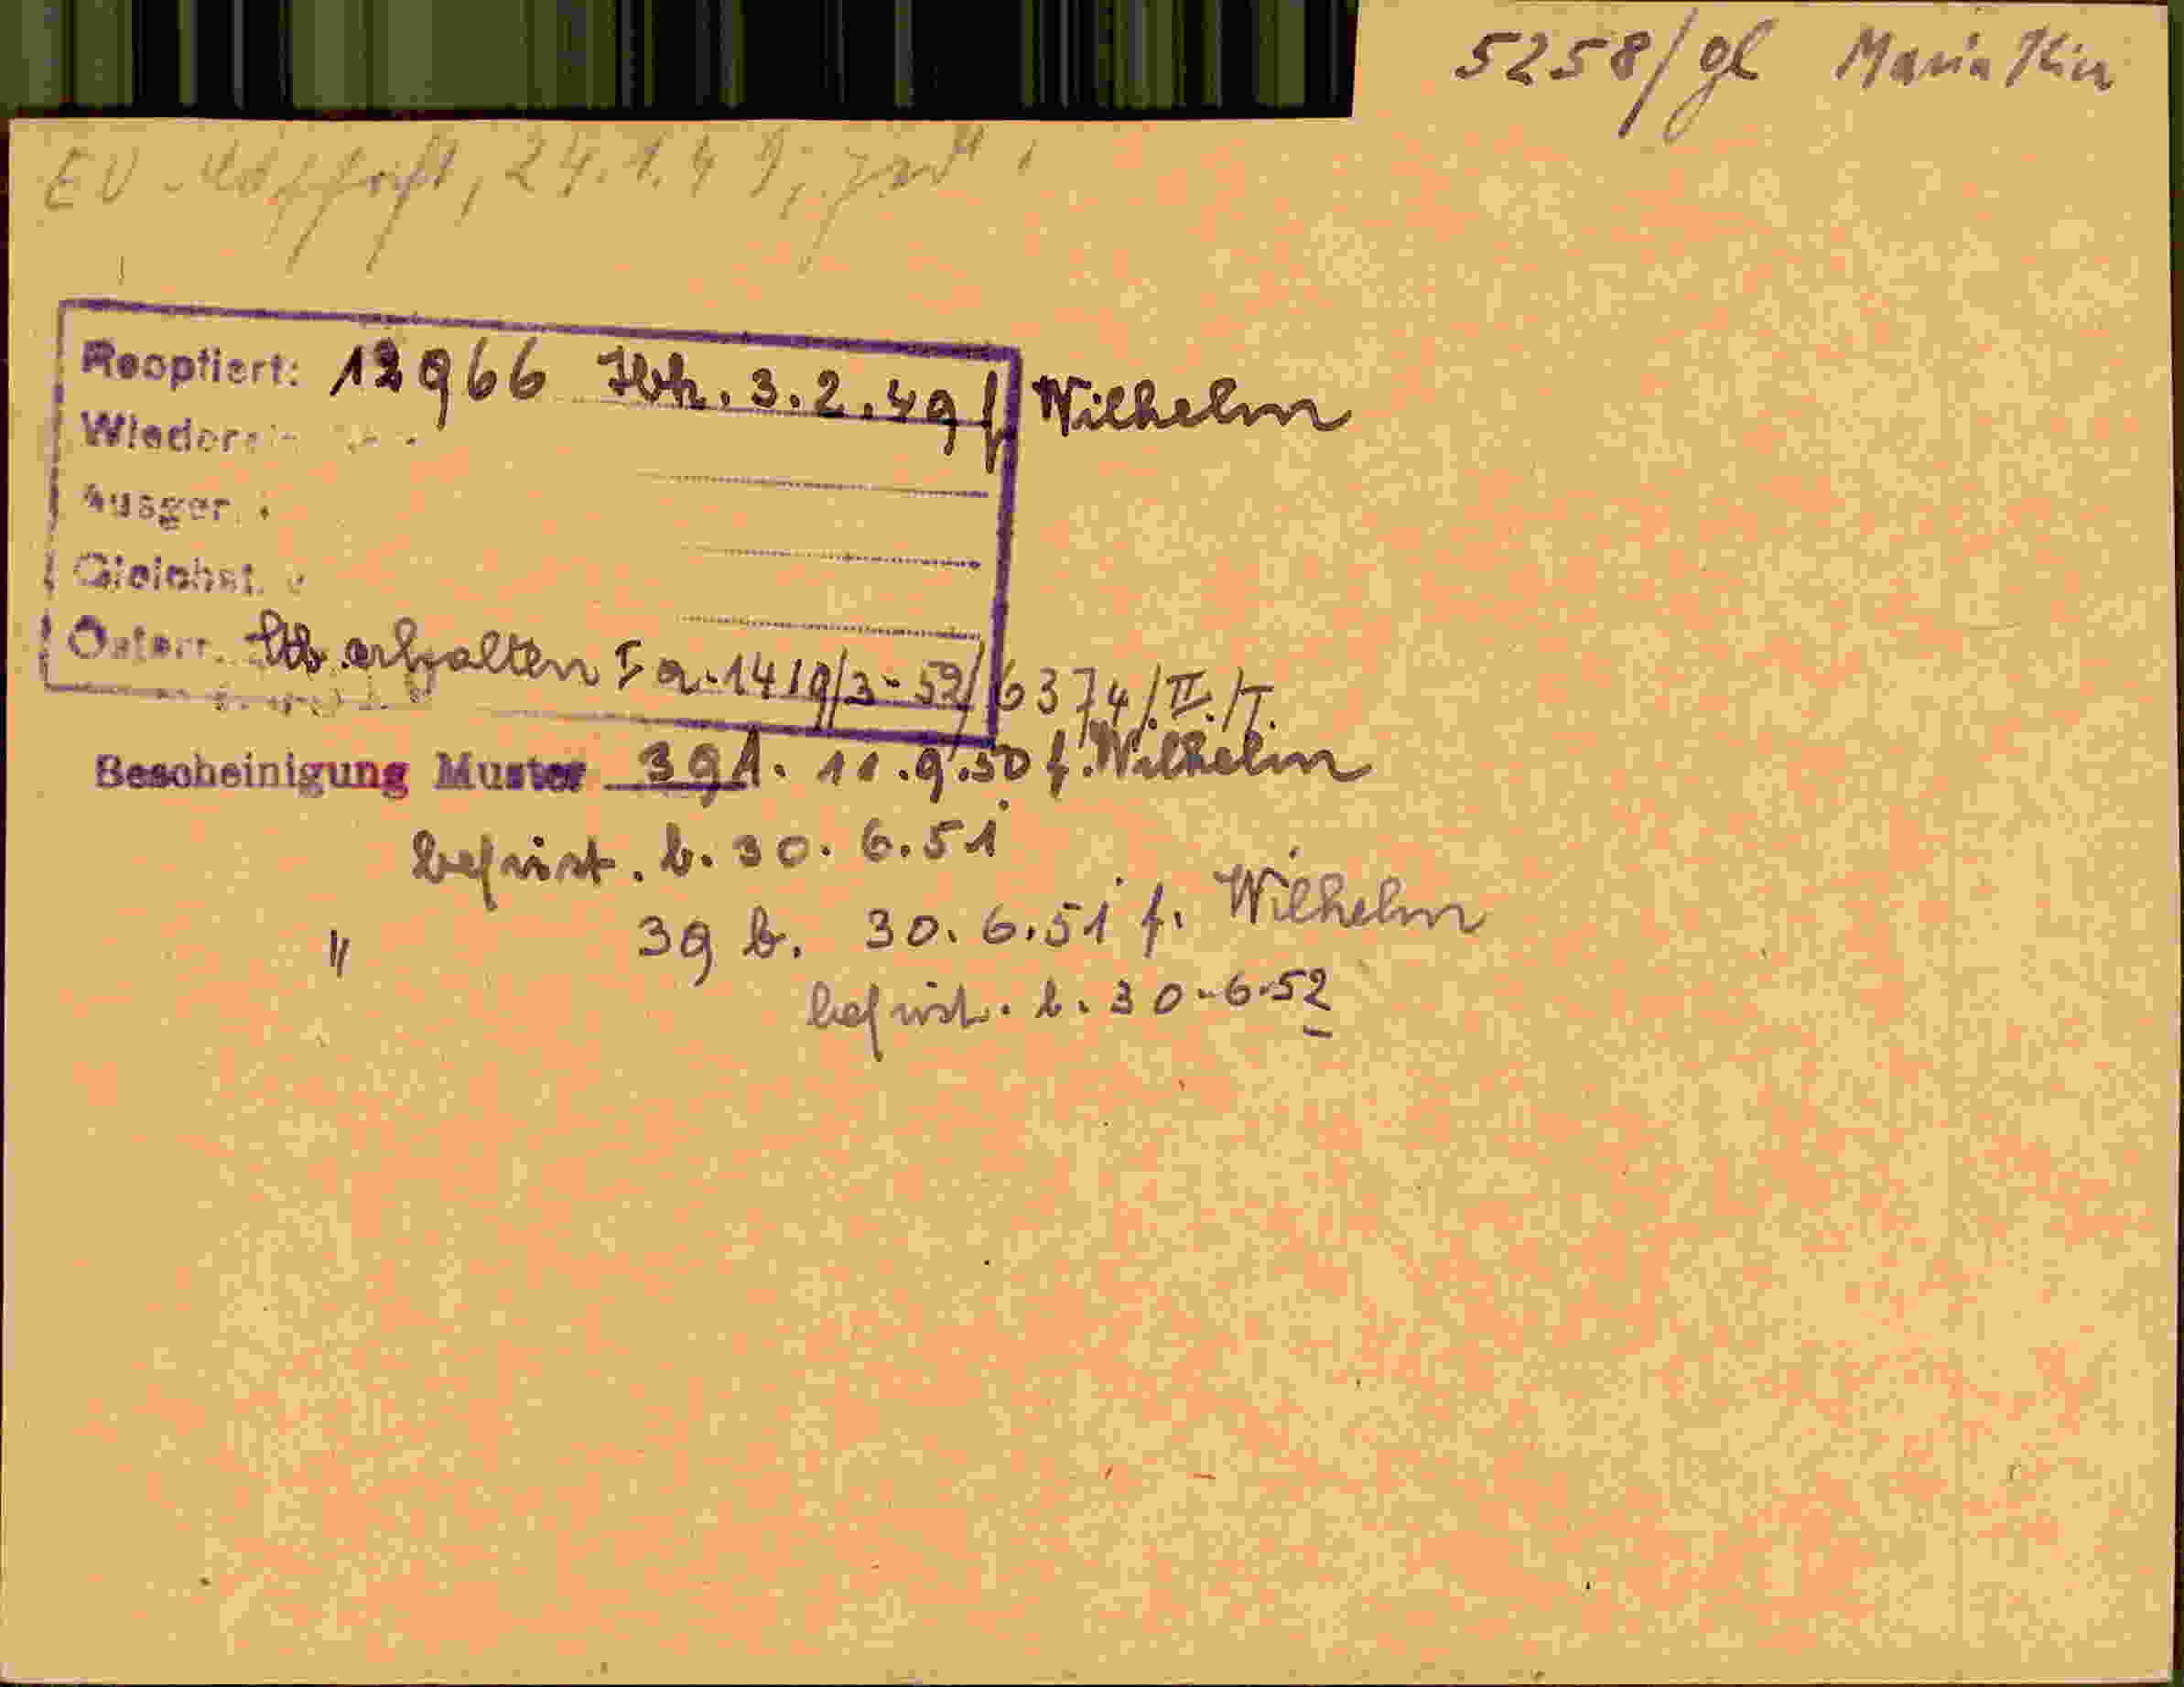 5258/gl Maria
EV - 24.1.49,
Reoptiert: 12966 3.2.49 f. Wilhelm
Ausger.
Gleichst.
Österr. Stb. erhalten I a-1419/3-52/6374/II./T.
Bescheinigung Muster 39 A. 11.9.50 f. Wilhelm
befrist. b. 30.6.51
" 39 b. 30.6.51 f. Wilhelm
befrist. b. 30.6.52